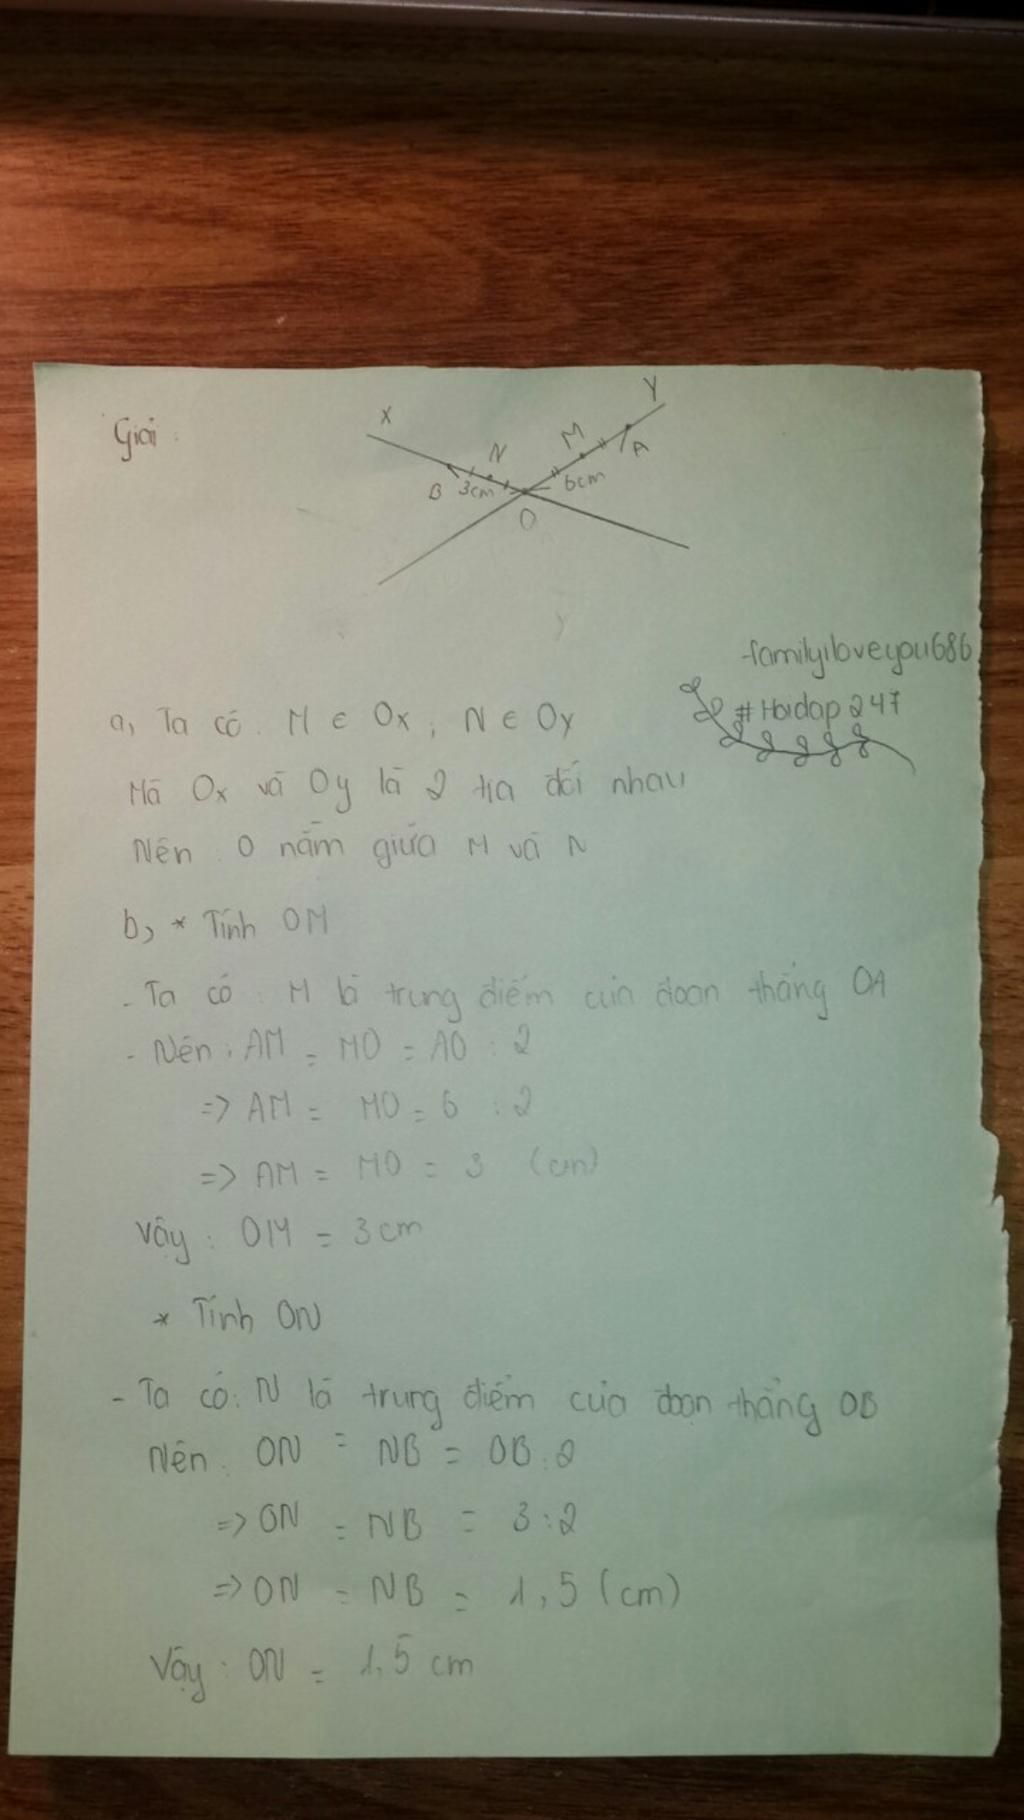 Giải :
X
Y
N
M
A
B
3cm
6cm
O
familyiloveyou686
#Hoidap247
a, Ta có : M ∈ Ox ; N ∈ Oy
Mà Ox và Oy là 2 tia đối nhau
Nên : O nằm giữa M và N
b, * Tính OM
- Ta có : M là trung điểm của đoạn thẳng OA
- Nên : AM = MO = AO : 2
=> AM = MO = 6 : 2
=> AM = MO = 3 (cm)
Vậy : OM = 3cm
* Tính ON
- Ta có : N là trung điểm của đoạn thẳng OB
Nên : ON = NB = OB : 2
=> ON = NB = 3 : 2
=> ON = NB = 1,5 (cm)
Vậy : ON = 1,5 cm